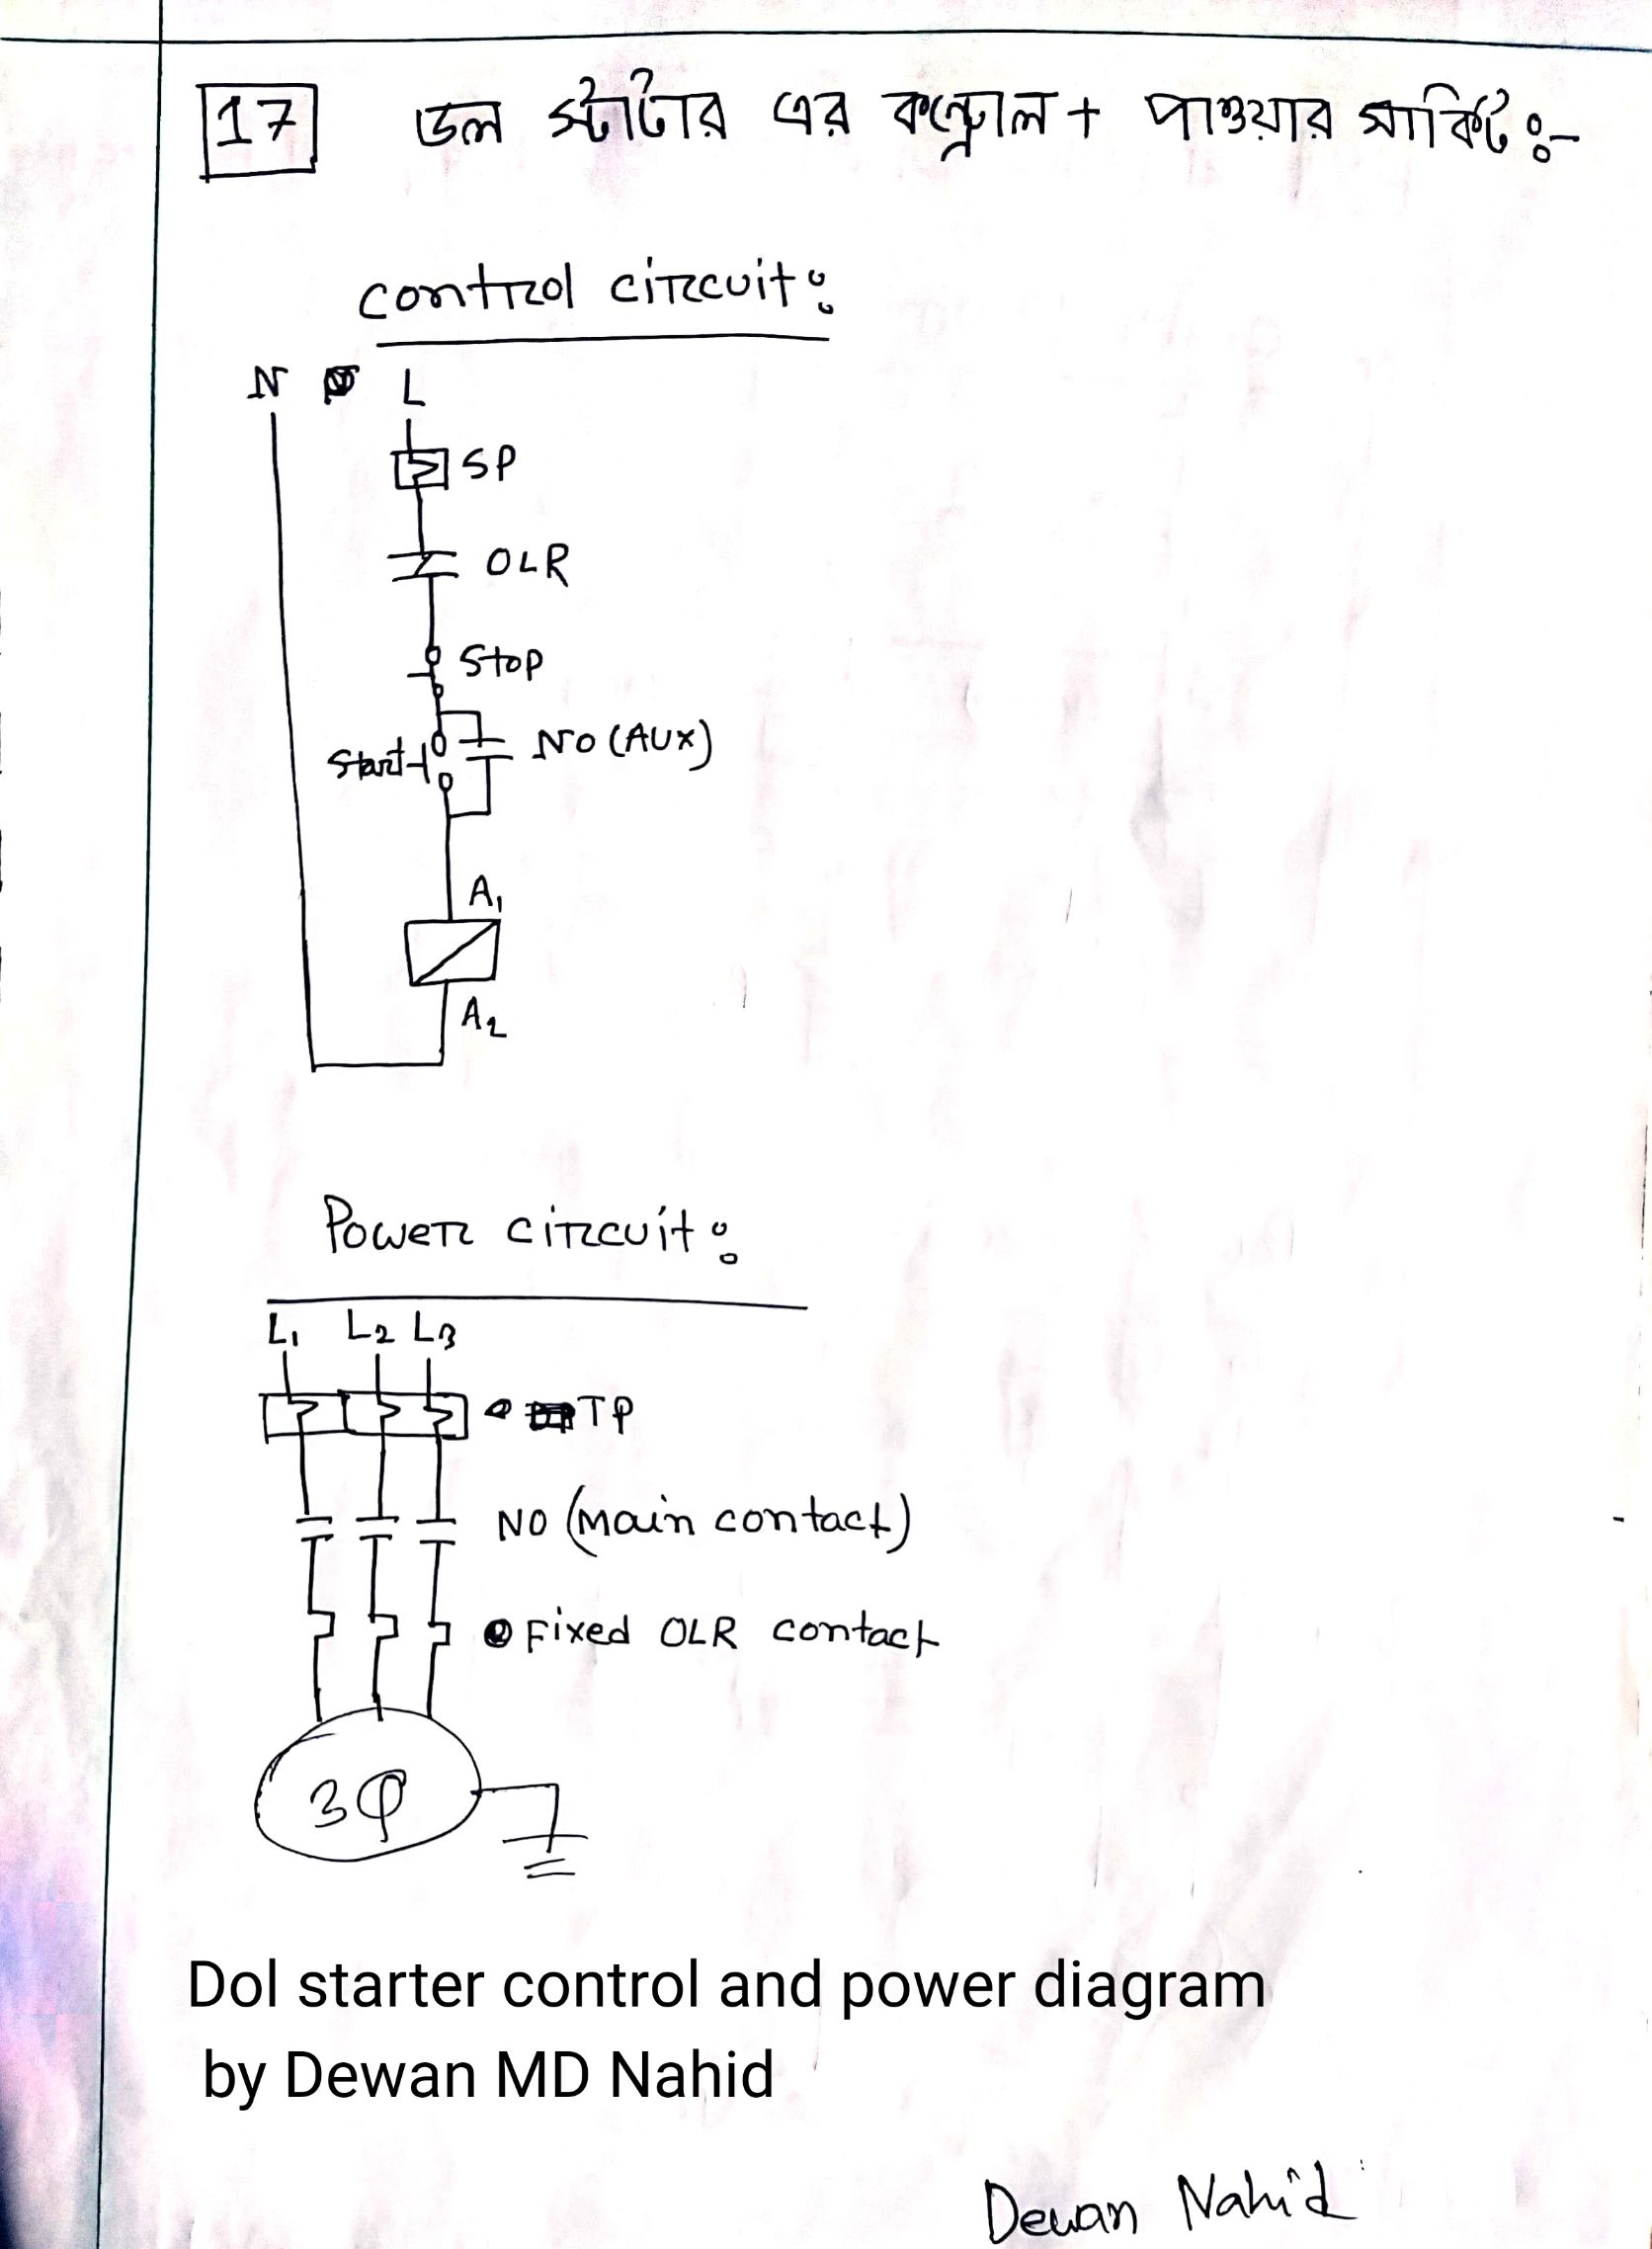 17 ডল স্টার্টার এর কন্ট্রোল + পাওয়ার সার্কিট :-
Control circuit :
N L
SP
OLR
Stop
Start NO (AUX)
A1
A2
Power circuit :
L1 L2 L3
TP
NO (Main contact)
Fixed OLR contact
3φ
Dol starter control and power diagram
by Dewan MD Nahid
Dewan Nahid